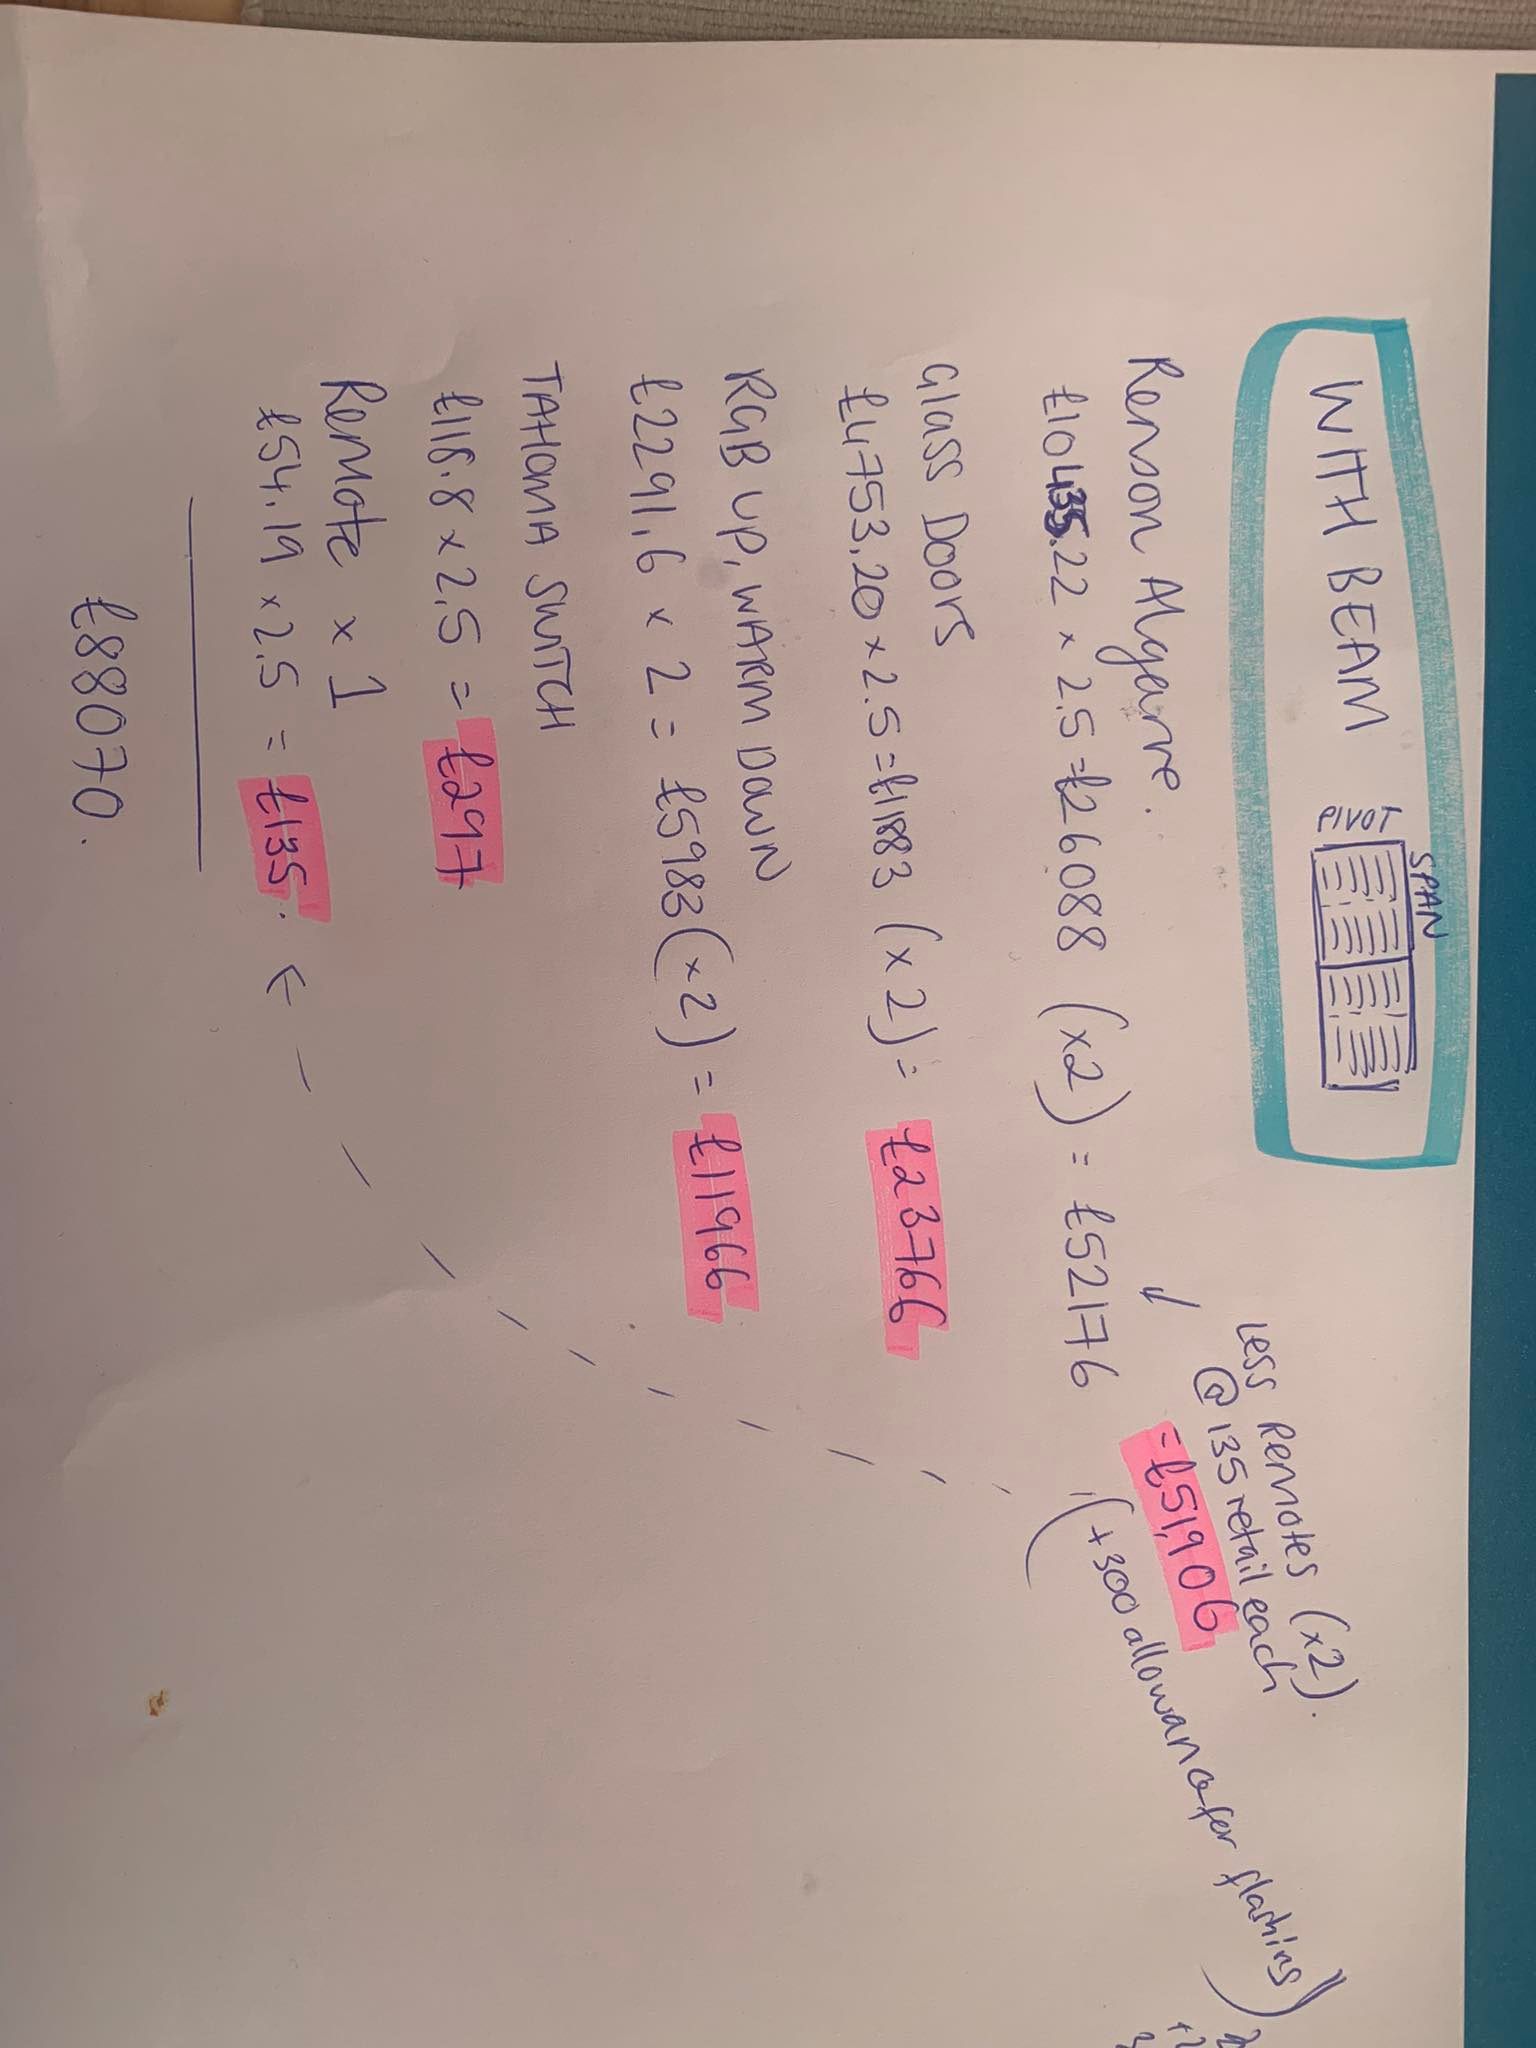 WITH BEAM
PIVOT
SPAN
Less Remotes (x2).
@ 135 retail each
= £51,906
Renson Algarve.
£10435.22 x 2.5 = £26088 (x2) = £52176
(+300 allowance for flashings)
Glass Doors
£4753.20 x 2.5 = £11883 (x2) = £23766
RGB UP, WARM DOWN
£2291.6 x 2 = £5983 (x2) = £11966
TAHOMA SWITCH
£118.8 x 2.5 = £297
Remote x 1
£54.19 x 2.5 = £135.
£88070.